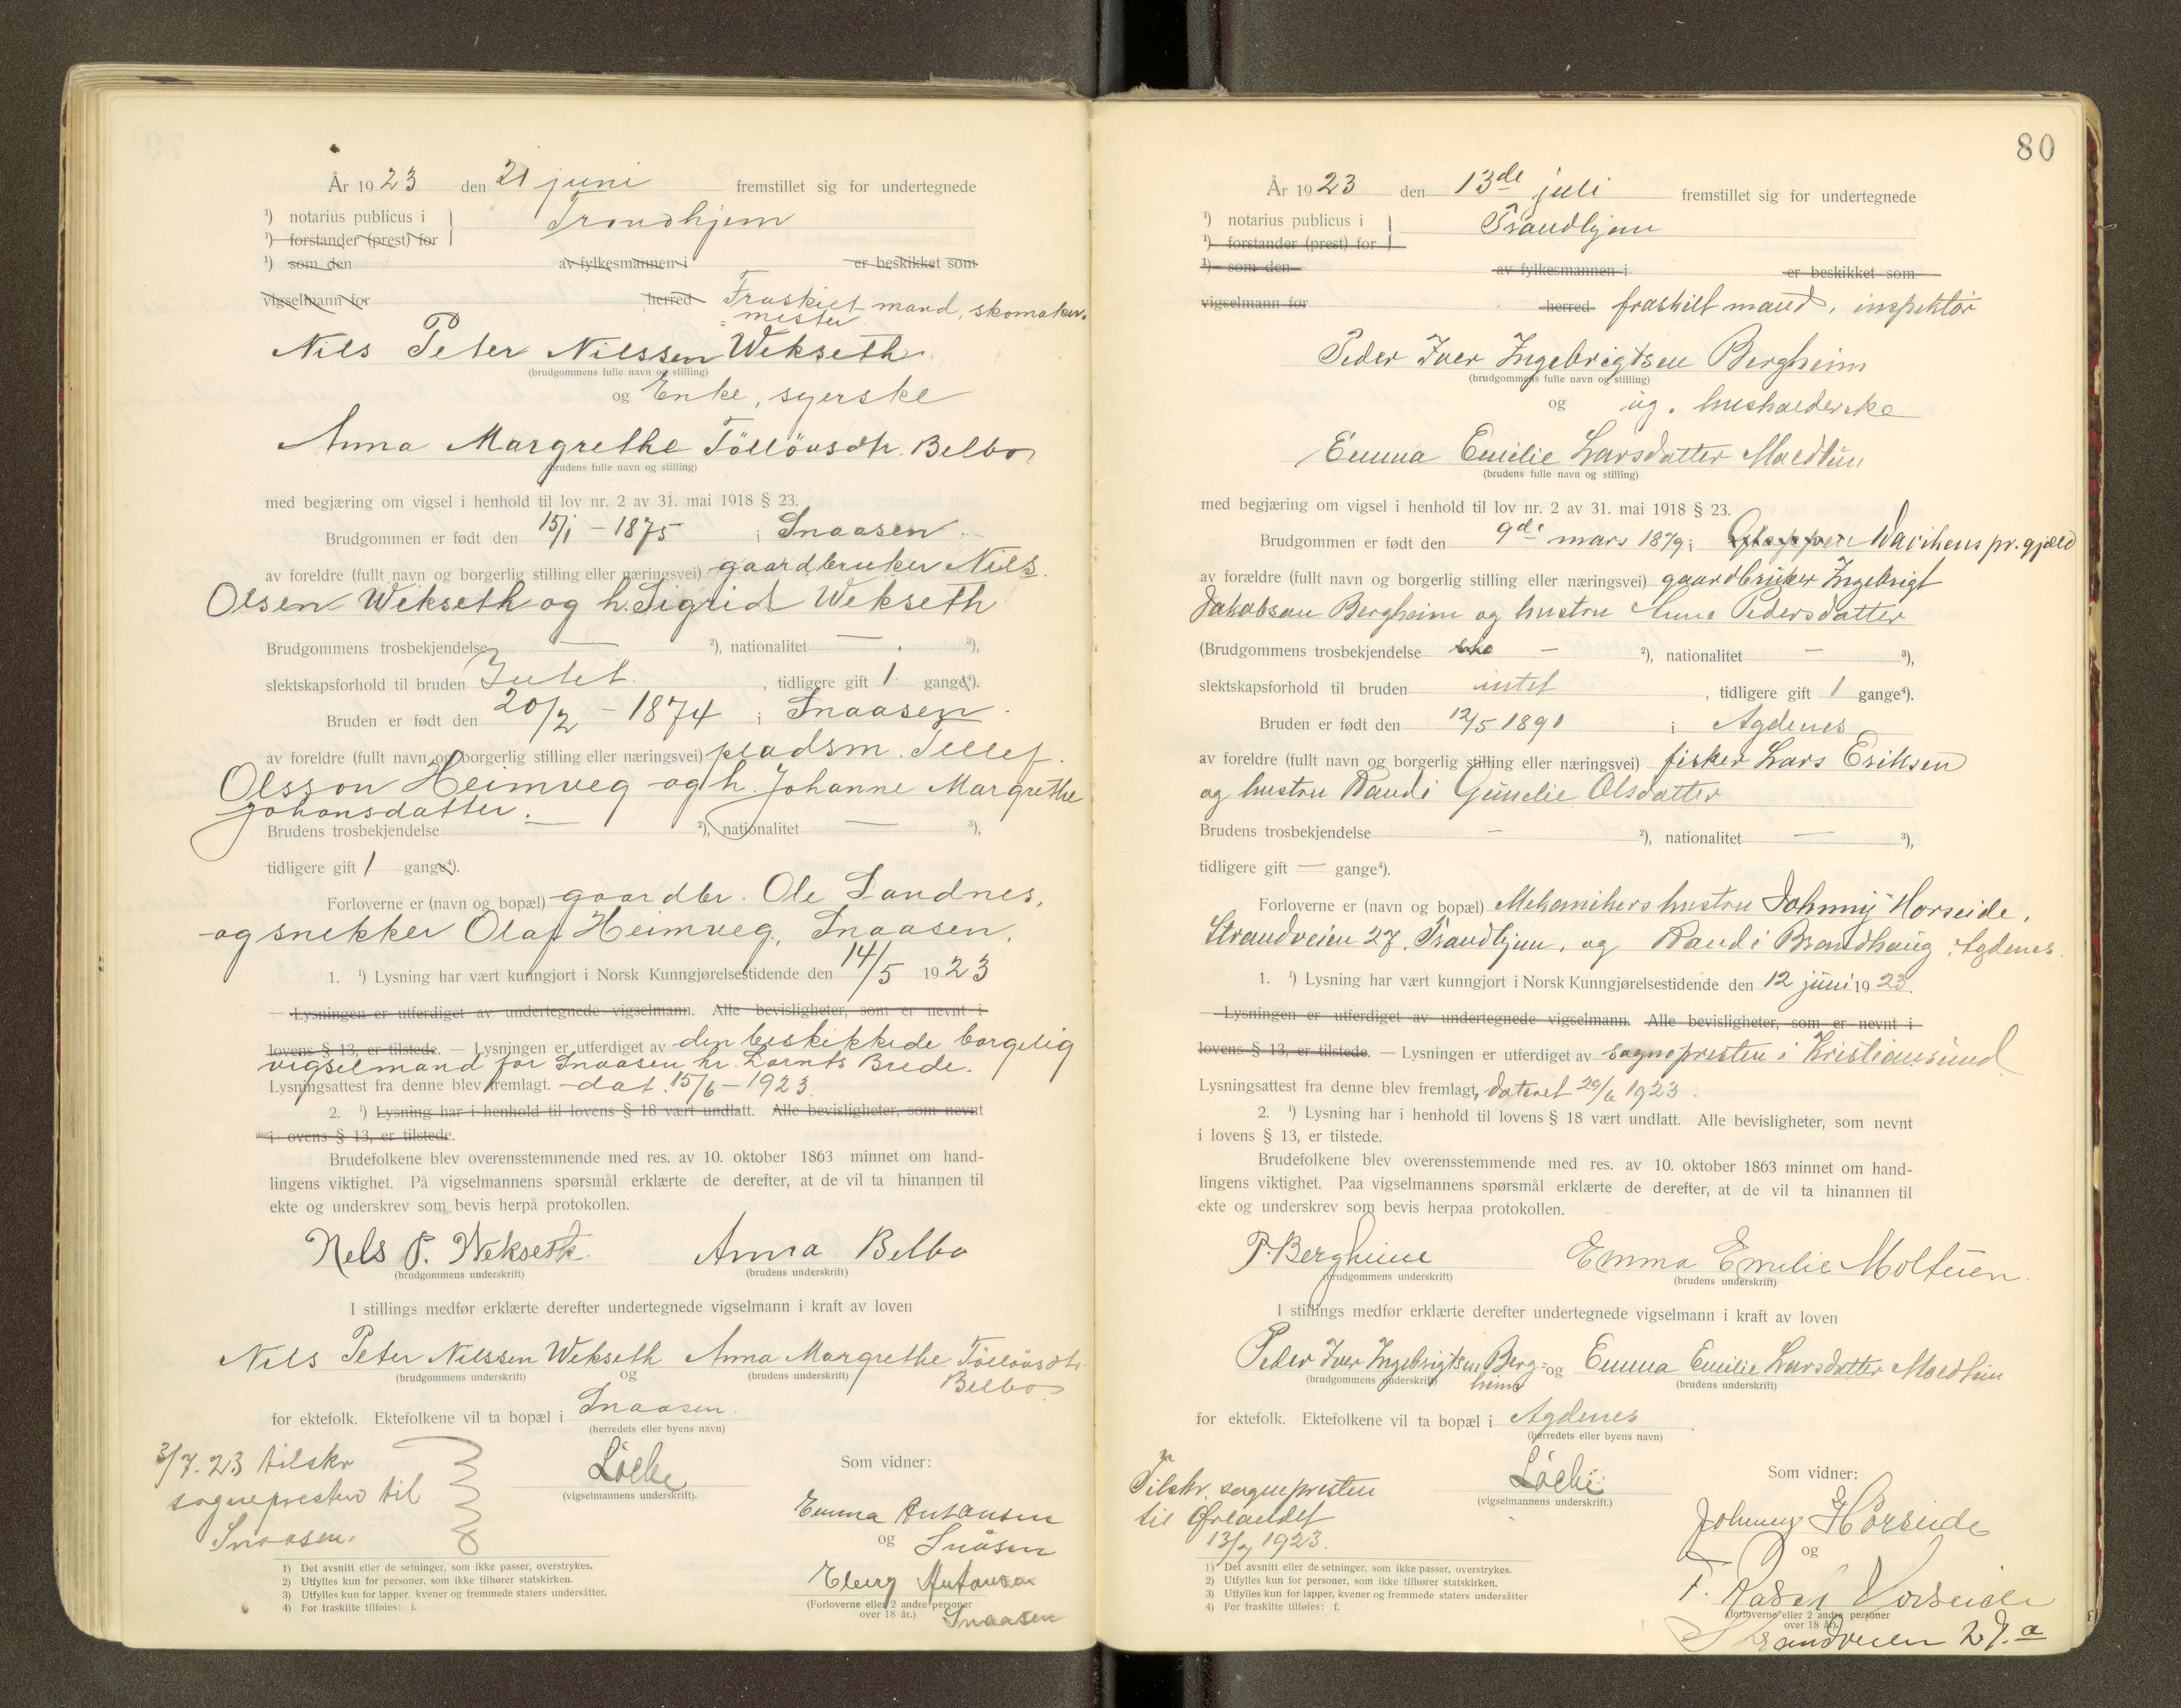 År 1923 den 21 juni fremstillet sig for undertegnede
¹) notarius publicus i } Trondhjem
¹) forstander (prest) for
¹) som den av fylkesmannen i er beskikket som
vigselmann for herred Fraskilt mand, skomaker-
mester
Nils Peter Nilssen Wekseth
(brudgommens fulle navn og stilling)
og Enke, syerske
Anna Margrethe Tölløvsdtr. Belbo
(brudens fulle navn og stilling)
med begjæring om vigsel i henhold til lov nr. 2 av 31. mai 1918 § 23.
Brudgommen er født den 15/1 - 1875 i Snaasen
av foreldre (fullt navn og borgerlig stilling eller næringsvei) gaardbruker Nils
Olsen Wekseth og h. Sigrid Wekseth
Brudgommens trosbekjendelse — ²), nationalitet — ³),
slektskapsforhold til bruden Intet. , tidligere gift 1 gange⁴).
Bruden er født den 20/2 - 1874 i Snaasen.
av foreldre (fullt navn og borgerlig stilling eller næringsvei) pladsm. Tellef
Olsson Heimveg og h. Johanne Margrethe
Johansdatter.
Brudens trosbekjendelse — ²), nationalitet — ³),
tidligere gift 1 gange⁴).
Forloverne er (navn og bopæl) gaardbr. Ole Sandnes,
og snekker Olaf Heimveg, Snaasen.
1. ¹) Lysning har vært kunngjort i Norsk Kunngjørelsestidende den 14/5 1923
— Lysningen er utferdiget av undertegnede vigselmann. Alle bevisligheter, som er nevnt i
lovens § 13, er tilstede. — Lysningen er utferdiget av den beskikkede borgelig
vigselmand for Snaasen hr. Lornts Brede.
Lysningsattest fra denne blev fremlagt. - dat. 15/6 - 1923.
2. ¹) Lysning har i henhold til lovens § 18 vært undlatt. Alle bevisligheter, som nevnt
i lovens § 13, er tilstede.
Brudefolkene blev overensstemmende med res. av 10. oktober 1863 minnet om hand-
lingens viktighet. På vigselmannens spørsmål erklærte de derefter, at de vil ta hinannen til
ekte og underskrev som bevis herpå protokollen.
Nels P. Wekseth. Anna Belbo
(brudgommens underskrift) (brudens underskrift)
I stillings medfør erklærte derefter undertegnede vigselmann i kraft av loven
Nils Peter Nilssen Wekseth og Anna Margrethe Tölløvsdtr.
(brudgommens underskrift) (brudens underskrift)
Belbo
for ektefolk. Ektefolkene vil ta bopæl i Snaasen.
(herredets eller byens navn)
3/7.23 tilskr
sognepresten til
Snaasen.
(vigselmannens underskrift).
Som vidner:
Emma Antonsen
og Snåsen
Antonsen
(Forloverne eller 2 andre personer
over 18 år.) Snaasen
1) Det avsnitt eller de setninger, som ikke passer, overstrykes.
2) Utfylles kun for personer, som ikke tilhører statskirken.
3) Utfylles kun for lapper, kvener og fremmede staters undersåtter.
4) For fraskilte tilføies: f.
80
År 1923 den 13de juli fremstillet sig for undertegnede
¹) notarius publicus i } Trondhjem
¹) forstander (prest) for
¹) som den av fylkesmannen i er beskikket som
vigselmann for herred fraskilt mand, inspektör
Peder Iver Ingebrigtsen Bergheim
(brudgommens fulle navn og stilling)
og ug. husholderske
Emma Emilie Larsdatter Moldtun
(brudens fulle navn og stilling)
med begjæring om vigsel i henhold til lov nr. 2 av 31. mai 1918 § 23.
Brudgommen er født den 9de mars 1879 i pr.gjeld
av forældre (fullt navn og borgerlig stilling eller næringsvei) gaardbruker Ingebrigt
Jakobsen Bergheim og hustru Anne Pedersdatter
(Brudgommens trosbekjendelse — ²), nationalitet — ³),
slektskapsforhold til bruden intet , tidligere gift 1 gange⁴).
Bruden er født den 12/5 1891 i Agdenes
av foreldre (fullt navn og borgerlig stilling eller næringsvei) fisker Lars Eriksen
og hustru Randi Gunelie Olsdatter
Brudens trosbekjendelse — ²), nationalitet — ³),
tidligere gift — gange⁴).
Forloverne er (navn og bopæl) Mekanikers hustru Johnny Horseide,
Strandveien 27, Trondhjem, og Randi Brandhaug, Agdenes.
1. ¹) Lysning har vært kunngjort i Norsk Kunngjørelsestidende den 12 juni 1923.
— Lysningen er utferdiget av undertegnede vigselmann. Alle bevisligheter, som er nevnt i
lovens § 13, er tilstede. — Lysningen er utferdiget av sognepresten i Kristiansund
Lysningsattest fra denne blev fremlagt, dateret 29/6 1923.
2. ¹) Lysning har i henhold til lovens § 18 vært undlatt. Alle bevisligheter, som nevnt
i lovens § 13, er tilstede.
Brudefolkene blev overensstemmende med res. av 10. oktober 1863 minnet om hand-
lingens viktighet. Paa vigselmannens spørsmål erklærte de derefter, at de vil ta hinannen til
ekte og underskrev som bevis herpaa protokollen.
P. Bergheim Emma Emelie Moltuen.
(brudgommens underskrift) (brudens underskrift)
I stillings medfør erklærte derefter undertegnede vigselmann i kraft av loven
Peder Iver Ingebrigtsen Berg- og Emma Emilie Larsdatter Moldtun
heim
(brudgommens underskrift) (brudens underskrift)
for ektefolk. Ektefolkene vil ta bopæl i Agdenes.
(herredets eller byens navn)
Tilskr. sognepresten
til Ørlandet
13/7 1923.
(vigselmannens underskrift.)
Som vidner:
Johnny Horseide
og
Horseide
(forloverne eller 2 andre personer
over 18 år).
Strandveien 27.a
1) Det avsnitt eller de setninger, som ikke passer, overstrykes.
2) Utfylles kun for personer, som ikke tilhører statskirken.
3) Utfylles kun for lapper, kvener og fremmede staters undersåtter
4) For fraskilte tilføies: f.